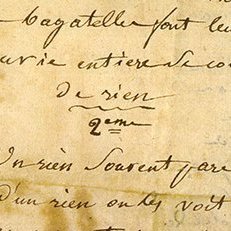 bagatelle font le
vie entiere se co
de rien
2eme
Un rien souvent pare
D'un rien on les voit